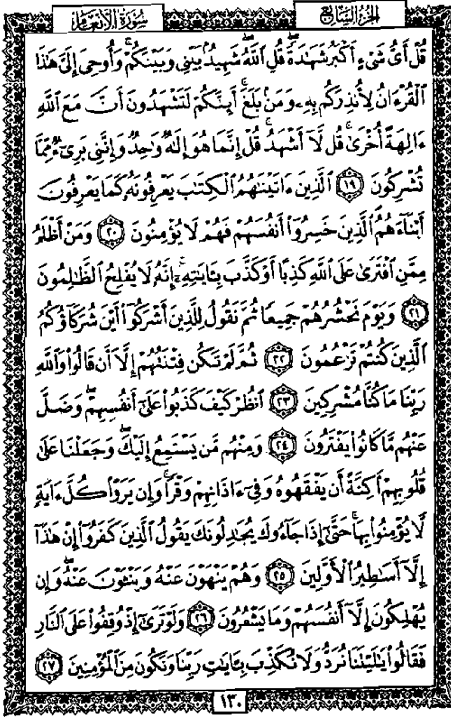 سُورَةُ الأَنْعَامِ
الجزء السابع
قُلْ أَىُّ شَىْءٍ أَكْبَرُ شَهَٰدَةًۖ قُلِ ٱللَّهُۖ شَهِيدُۢ بَيْنِى وَبَيْنَكُمْۚ وَأُوحِىَ إِلَىَّ هَٰذَا
ٱلْقُرْءَانُ لِأُنذِرَكُم بِهِۦ وَمَنۢ بَلَغَۚ أَئِنَّكُمْ لَتَشْهَدُونَ أَنَّ مَعَ ٱللَّهِ
ءَالِهَةً أُخْرَىٰۚ قُل لَّآ أَشْهَدُۚ قُلْ إِنَّمَا هُوَ إِلَٰهٌ وَٰحِدٌ وَإِنَّنِى بَرِىٓءٌ مِّمَّا
تُشْرِكُونَ ١٩ ٱلَّذِينَ ءَاتَيْنَٰهُمُ ٱلْكِتَٰبَ يَعْرِفُونَهُۥ كَمَا يَعْرِفُونَ
أَبْنَآءَهُمُ ٱلَّذِينَ خَسِرُوٓا۟ أَنفُسَهُمْ فَهُمْ لَا يُؤْمِنُونَ ٢٠ وَمَنْ أَظْلَمُ
مِمَّنِ ٱفْتَرَىٰ عَلَى ٱللَّهِ كَذِبًا أَوْ كَذَّبَ بِـَٔايَٰتِهِۦٓۗ إِنَّهُۥ لَا يُفْلِحُ ٱلظَّٰلِمُونَ
٢١ وَيَوْمَ نَحْشُرُهُمْ جَمِيعًا ثُمَّ نَقُولُ لِلَّذِينَ أَشْرَكُوٓا۟ أَيْنَ شُرَكَآؤُكُمُ
ٱلَّذِينَ كُنتُمْ تَزْعُمُونَ ٢٢ ثُمَّ لَمْ تَكُن فِتْنَتُهُمْ إِلَّآ أَن قَالُوا۟ وَٱللَّهِ
رَبِّنَا مَا كُنَّا مُشْرِكِينَ ٢٣ ٱنظُرْ كَيْفَ كَذَبُوا۟ عَلَىٰٓ أَنفُسِهِمْۚ وَضَلَّ
عَنْهُم مَّا كَانُوا۟ يَفْتَرُونَ ٢٤ وَمِنْهُم مَّن يَسْتَمِعُ إِلَيْكَۖ وَجَعَلْنَا عَلَىٰ
قُلُوبِهِمْ أَكِنَّةً أَن يَفْقَهُوهُ وَفِىٓ ءَاذَانِهِمْ وَقْرًاۚ وَإِن يَرَوْا۟ كُلَّ ءَايَةٍ
لَّا يُؤْمِنُوا۟ بِهَاۚ حَتَّىٰٓ إِذَا جَآءُوكَ يُجَٰدِلُونَكَ يَقُولُ ٱلَّذِينَ كَفَرُوٓا۟ إِنْ هَٰذَآ
إِلَّآ أَسَٰطِيرُ ٱلْأَوَّلِينَ ٢٥ وَهُمْ يَنْهَوْنَ عَنْهُ وَيَنْـَٔوْنَ عَنْهُۖ وَإِن
يُهْلِكُونَ إِلَّآ أَنفُسَهُمْ وَمَا يَشْعُرُونَ ٢٦ وَلَوْ تَرَىٰٓ إِذْ وُقِفُوا۟ عَلَى ٱلنَّارِ
فَقَالُوا۟ يَٰلَيْتَنَا نُرَدُّ وَلَا نُكَذِّبَ بِـَٔايَٰتِ رَبِّنَا وَنَكُونَ مِنَ ٱلْمُؤْمِنِينَ ٢٧
١٣٠